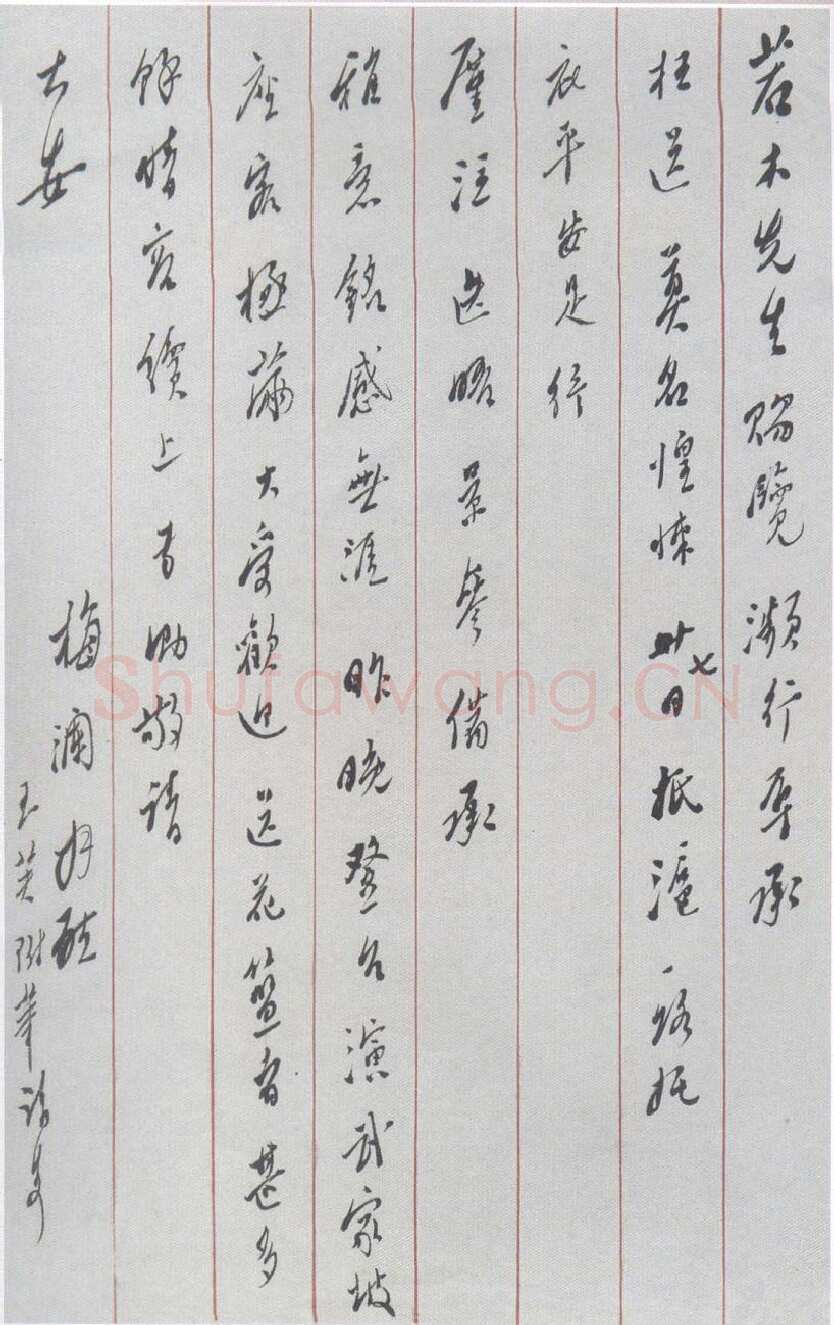 若木先生賜覽瀕行辱承
枉送莫名惶悚廿七日抵滬一路托
衣平安足紓
廑注迭晤景參備承
雅意銘感無涯昨晚登台演武家坡
座客極滿大受歡迎送花籃者甚多
餘情容續上專泐敬請
大安
梅瀾
玉芙附筆請安
Shufawang.CN